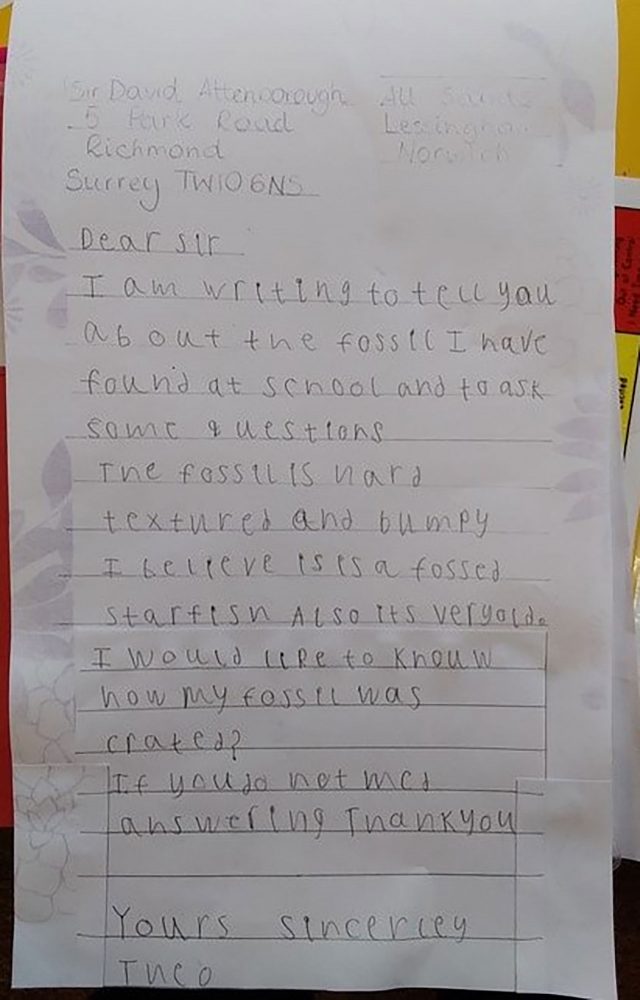 Sir David Attenborough
5 Park Road
Richmond
Surrey TW10 6NS
All
Lessingham
Norwich
Dear Sir
I am writing to tell you
about the fossil I have
found at school and to ask
some questions
The fossil is hard
textured and bumpy
I believe is is a fossed
starfish Also its very old.
I would like to knouw
how my fossil was
crated?
If you do not med
answering Thankyou
Yours sincerley
Theo